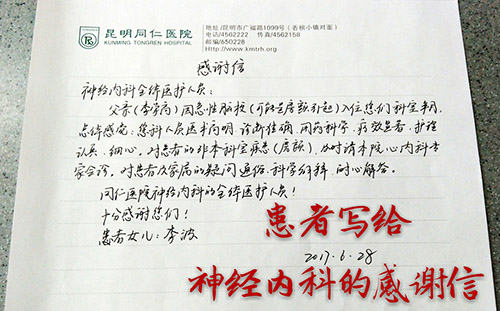 昆明同仁医院
KUNMING TONGREN HOSPITAL
地址/昆明市广福路1099号(香槟小镇对面)
电话/4562222 传真/4562158
邮编/650228
Http://www.kmtrh.org
感谢信
神经内科全体医护人员:
父亲(李)因急性脑梗(可能是房颤引起)入住您们科室半月,
总体感觉:您科人员医术高明、诊断准确、用药科学、疗效显著、护理
认真、细心。对患者的非本科室疾患(房颤),及时请本院心内科专
家会诊。对患者及家属的疑问通俗、科学解释、耐心解答。
同仁医院神经内科的全体医护人员!
十分感谢您们!
患者女儿:李波
2017.6.28
患者写给
神经内科的感谢信